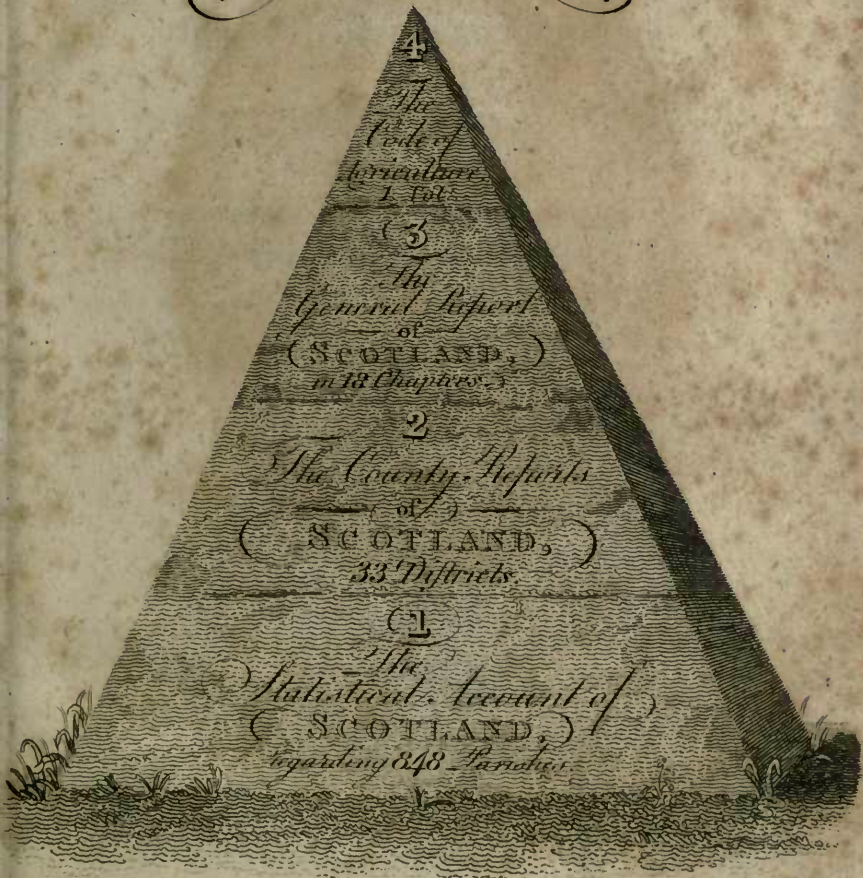 4
The
Code of
Agriculture
1 Vol.
3
The
General Report
of
(SCOTLAND,)
in 18 Chapters.
2
The County Reports
of
(SCOTLAND,)
33 Districts.
1
The
Statistical Account of
(SCOTLAND,)
regarding 848 Parishes